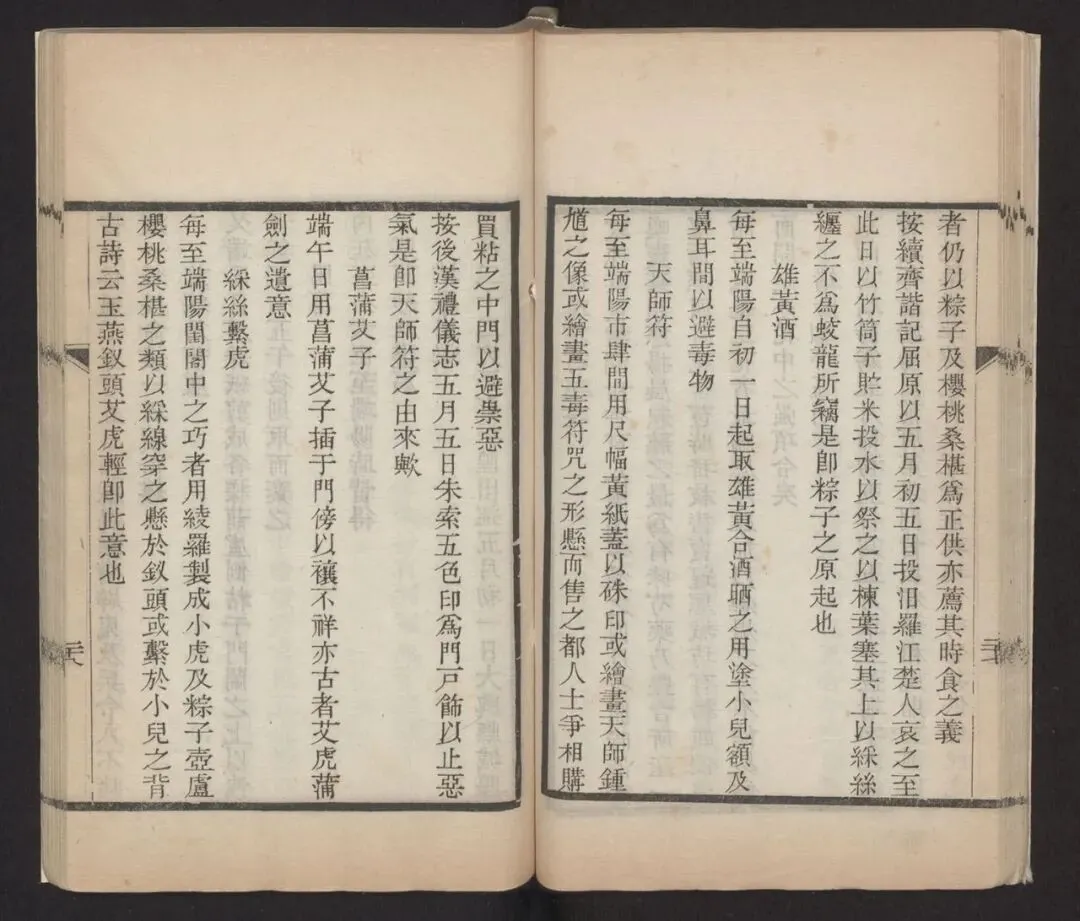 者仍以粽子及櫻桃桑椹爲正供亦薦其時食之義
按續齊諧記屈原以五月初五日投汨羅江楚人哀之至
此日以竹筒子貯米投水以祭之以楝葉塞其上以綵絲
纏之不爲蛟龍所竊是卽粽子之原起也
雄黃酒
每至端陽自初一日起取雄黃合酒晒之用塗小兒額及
鼻耳間以避毒物
天師符
每至端陽市肆間用尺幅黃紙蓋以硃印或繪畫天師鍾
馗之像或繪畫五毒符咒之形懸而售之都人士爭相購
買粘之中門以避祟惡
按後漢禮儀志五月五日朱索五色印爲門戸飾以止惡
氣是卽天師符之由來歟
菖蒲艾子
端午日用菖蒲艾子插于門傍以禳不祥亦古者艾虎蒲
劍之遺意
綵絲繫虎
每至端陽閨閣中之巧者用綾羅製成小虎及粽子壺盧
櫻桃桑椹之類以綵線穿之懸於釵頭或繫於小兒之背
古詩云玉燕釵頭艾虎輕卽此意也